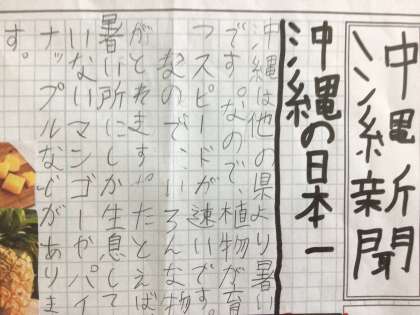 沖縄新聞
沖縄の日本一
沖縄は他の県より暑い
です。なので、植物が育
つスピードが速いです。
なので、いろんな物
がとれます。たとえば
暑い所にしか生息して
いないマンゴーやパイ
ナップルなどがありま
す。